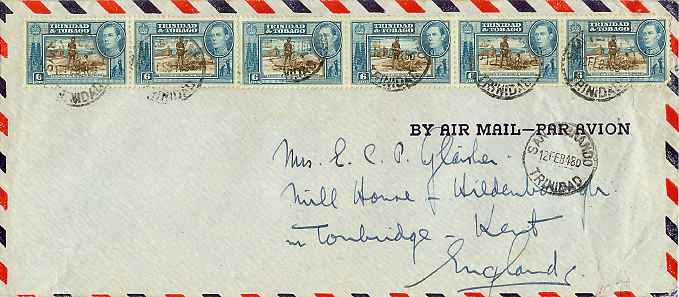 TRINIDAD & TOBAGO TRINIDAD & TOBAGO TRINIDAD & TOBAGO TRINIDAD & TOBAGO TRINIDAD & TOBAGO TRINIDAD & TOBAGO
6 6 6 6 6 6
TRINIDAD TRINIDAD TRINIDAD TRINIDAD TRINIDAD
BY AIR MAIL—PAR AVION
SAN FERNANDO
12 FEB 48
TRINIDAD
Mrs. E. C. P. Glaisher.
Mill House - Hildenborough.
nr Tonbridge - Kent
England.